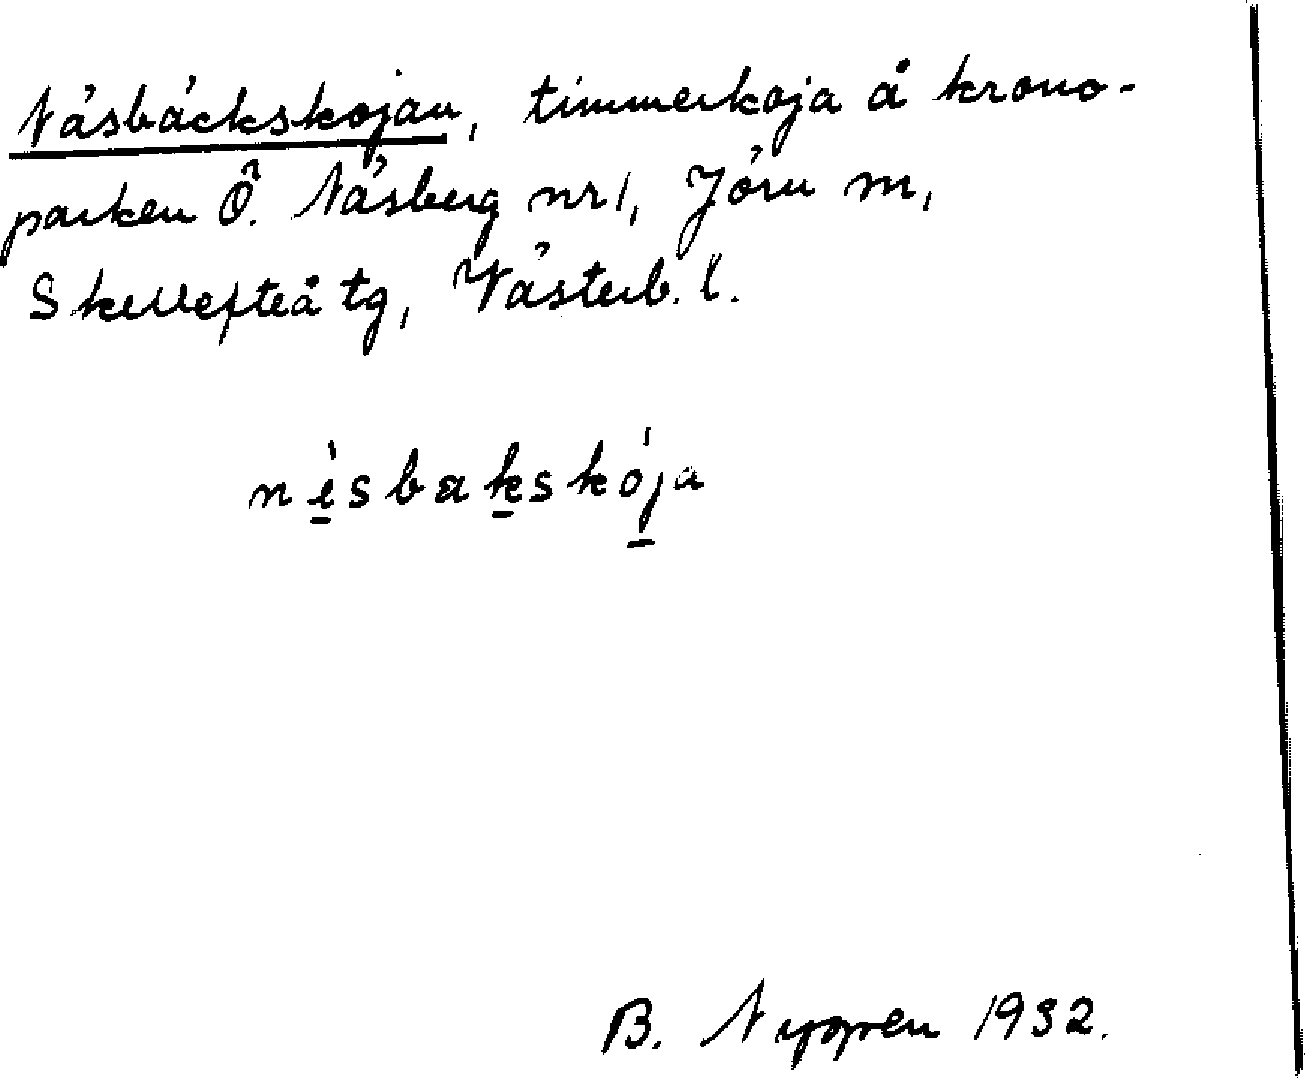 Näsbäckskojan, timmerkoja å krono-
parken Ö. Näsberg nr 1, Jörn m,
Skellefteå tg, Västerb. l.
nèsbakskója
B. 1932.